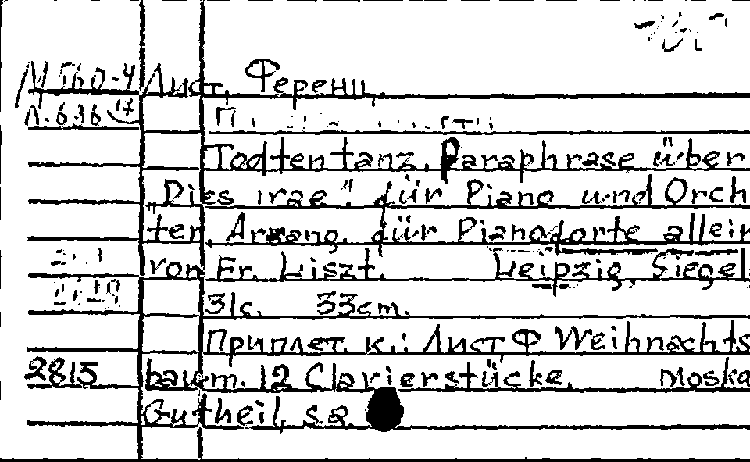 М 560-4 Лист, Ференц.
Л. 636
Todtentanz. Paraphrase über
"Dies irae". für Piano und Orch
ten. Arrang. für Pianoforte allein
von Fr. Liszt. Leipzig, Siegel,
31с. 33cm.
Приплет. к.: Лист, Ф Weihnachts
2815 baum. 12 Clavierstücke. Moska
Gutheil, s.a.